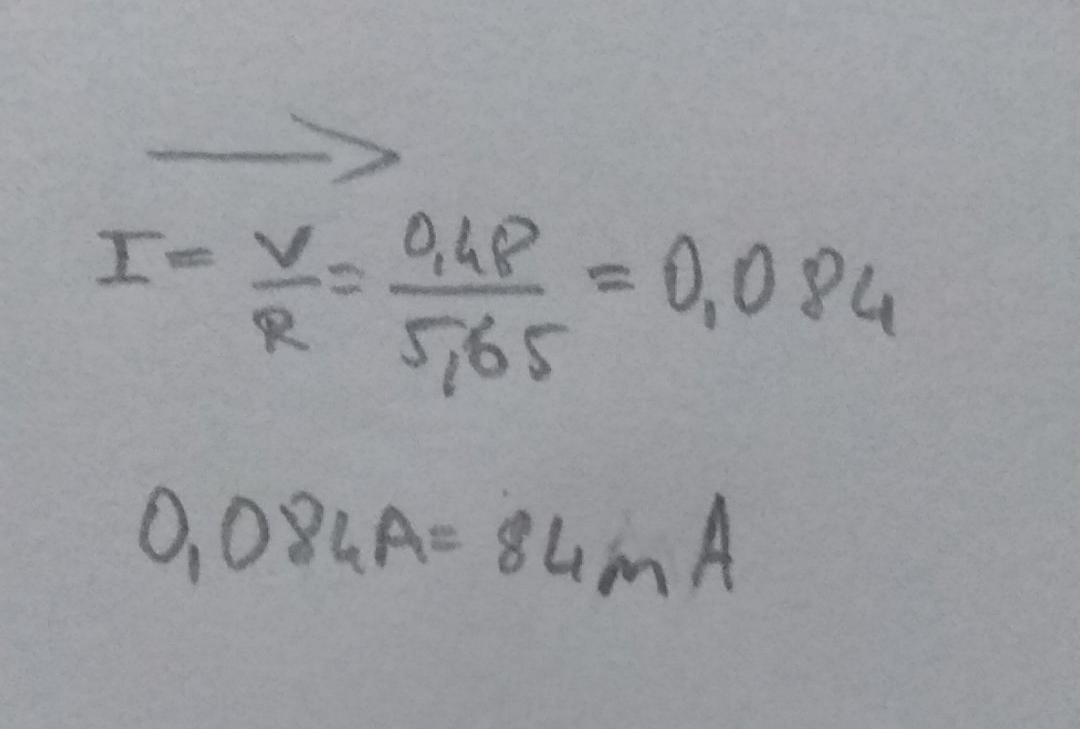 I = V/R = 0,48/5,65 = 0,084
0,084A = 84mA